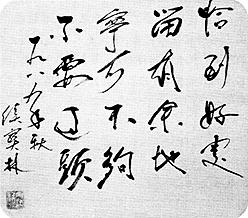 恰到好处
留有余地
宁可不夠
不要过头
一九八九年秋
侯宝林